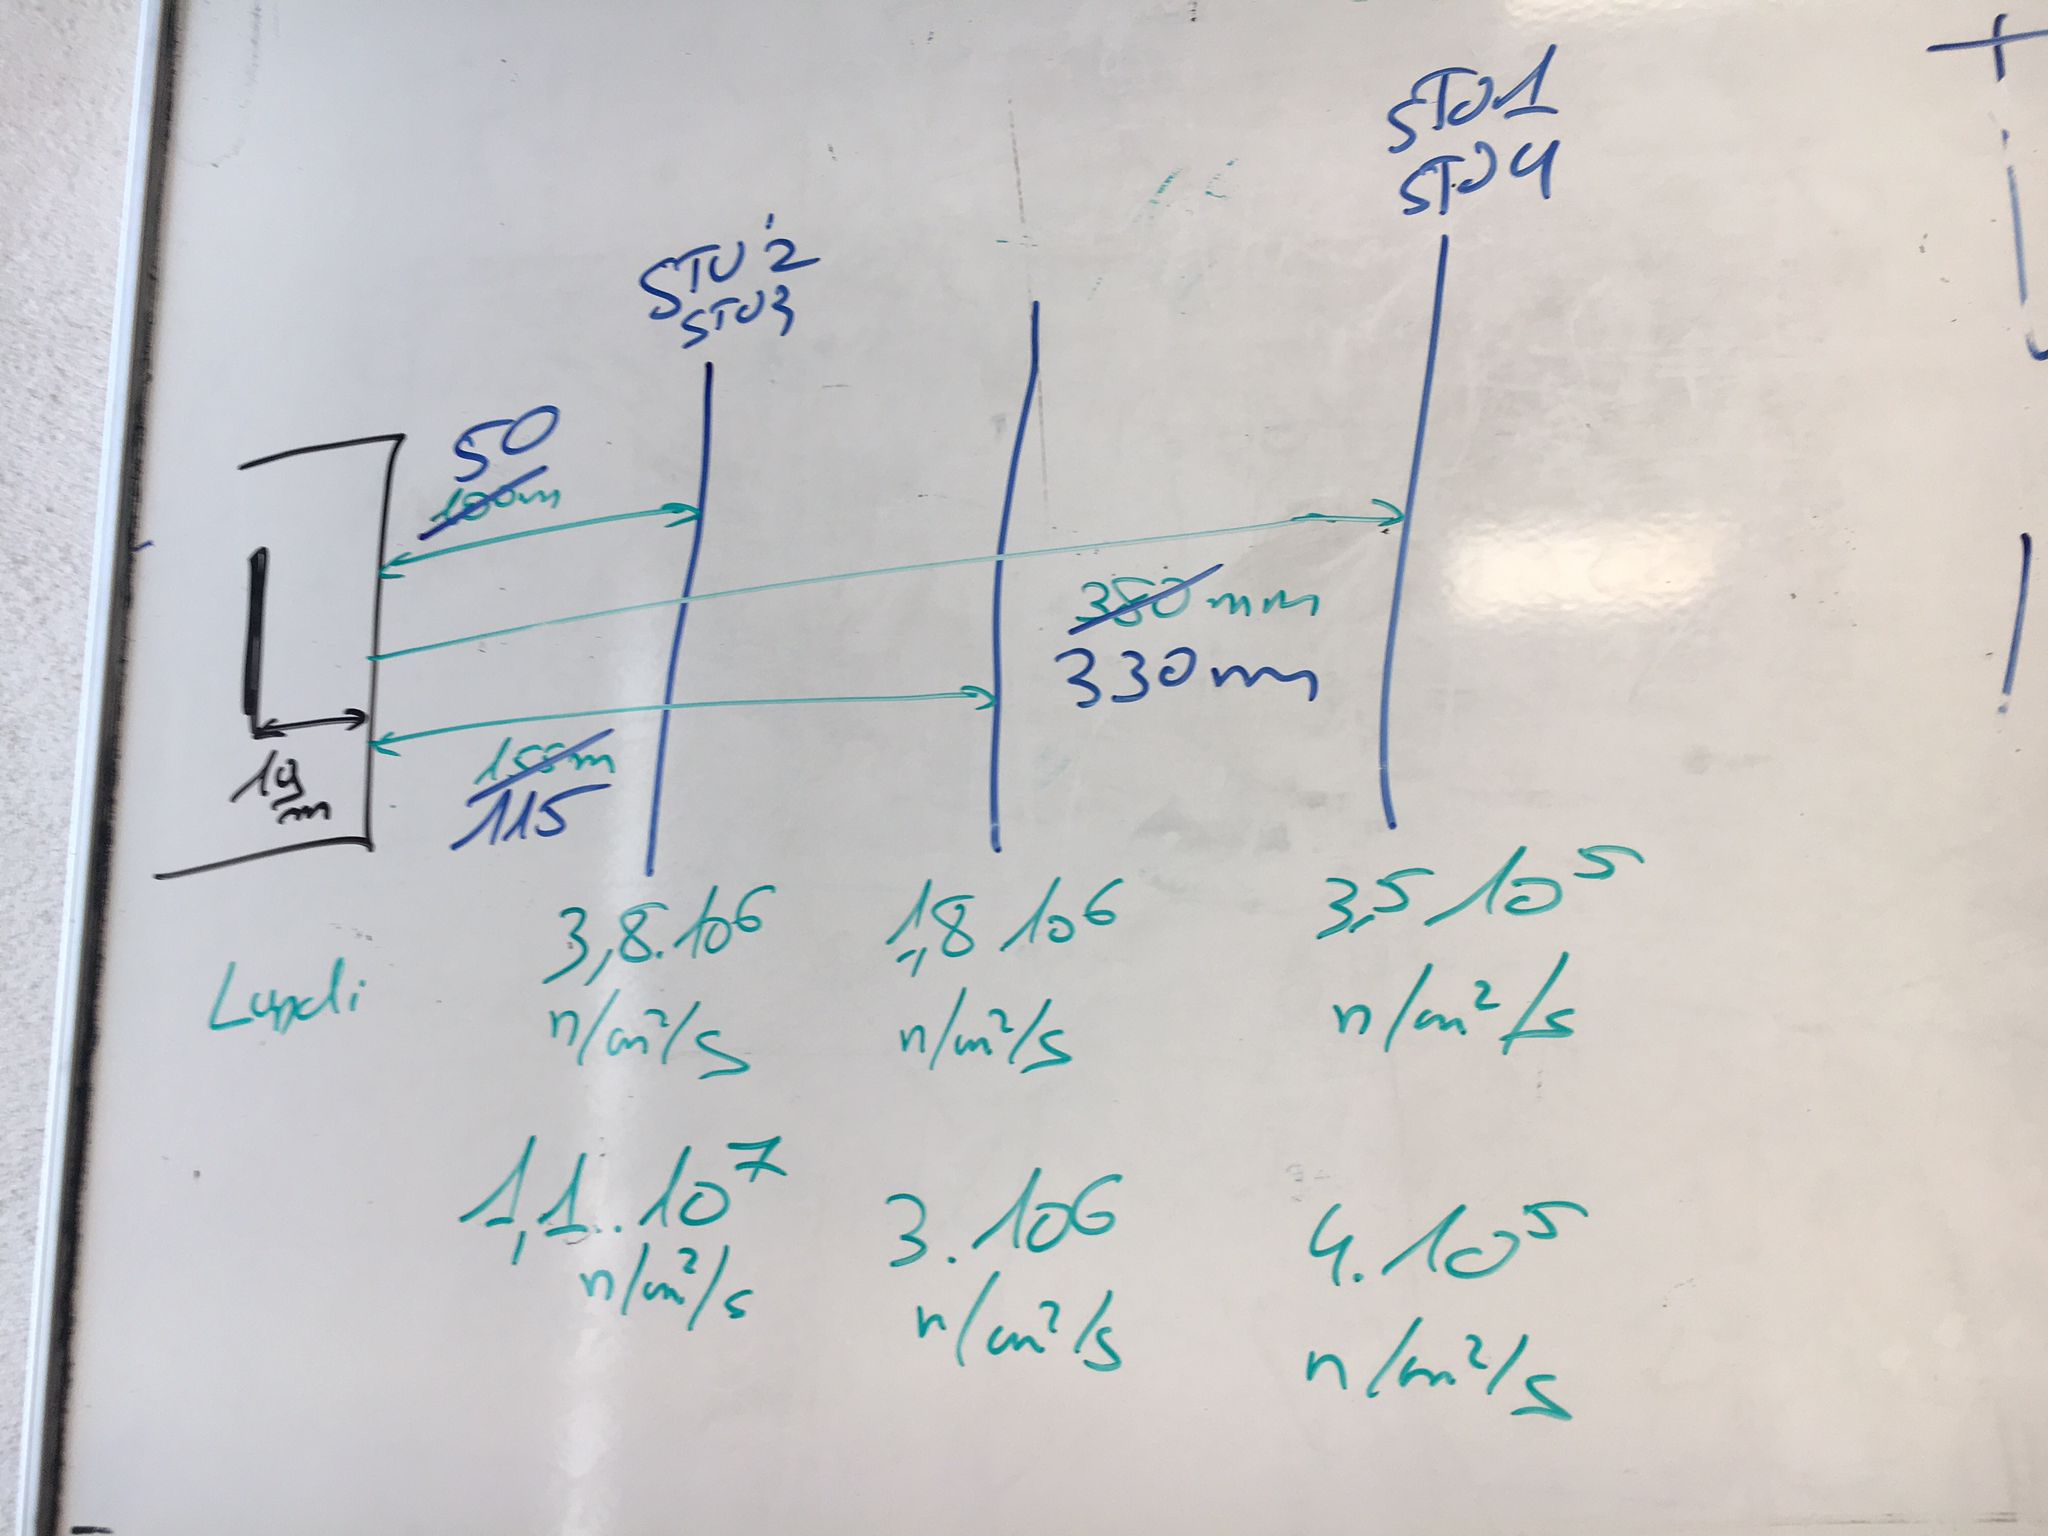 STO1
STO4
STO2
STO3
50
100m
380mm
330mm
19
m
115
Lundi
3,8.10⁶
n/cm²/s
1,8 10⁶
n/cm²/s
3,5 10⁵
n/cm²/s
1,1.10⁷
n/cm²/s
3.10⁶
n/cm²/s
4.10⁵
n/cm²/s